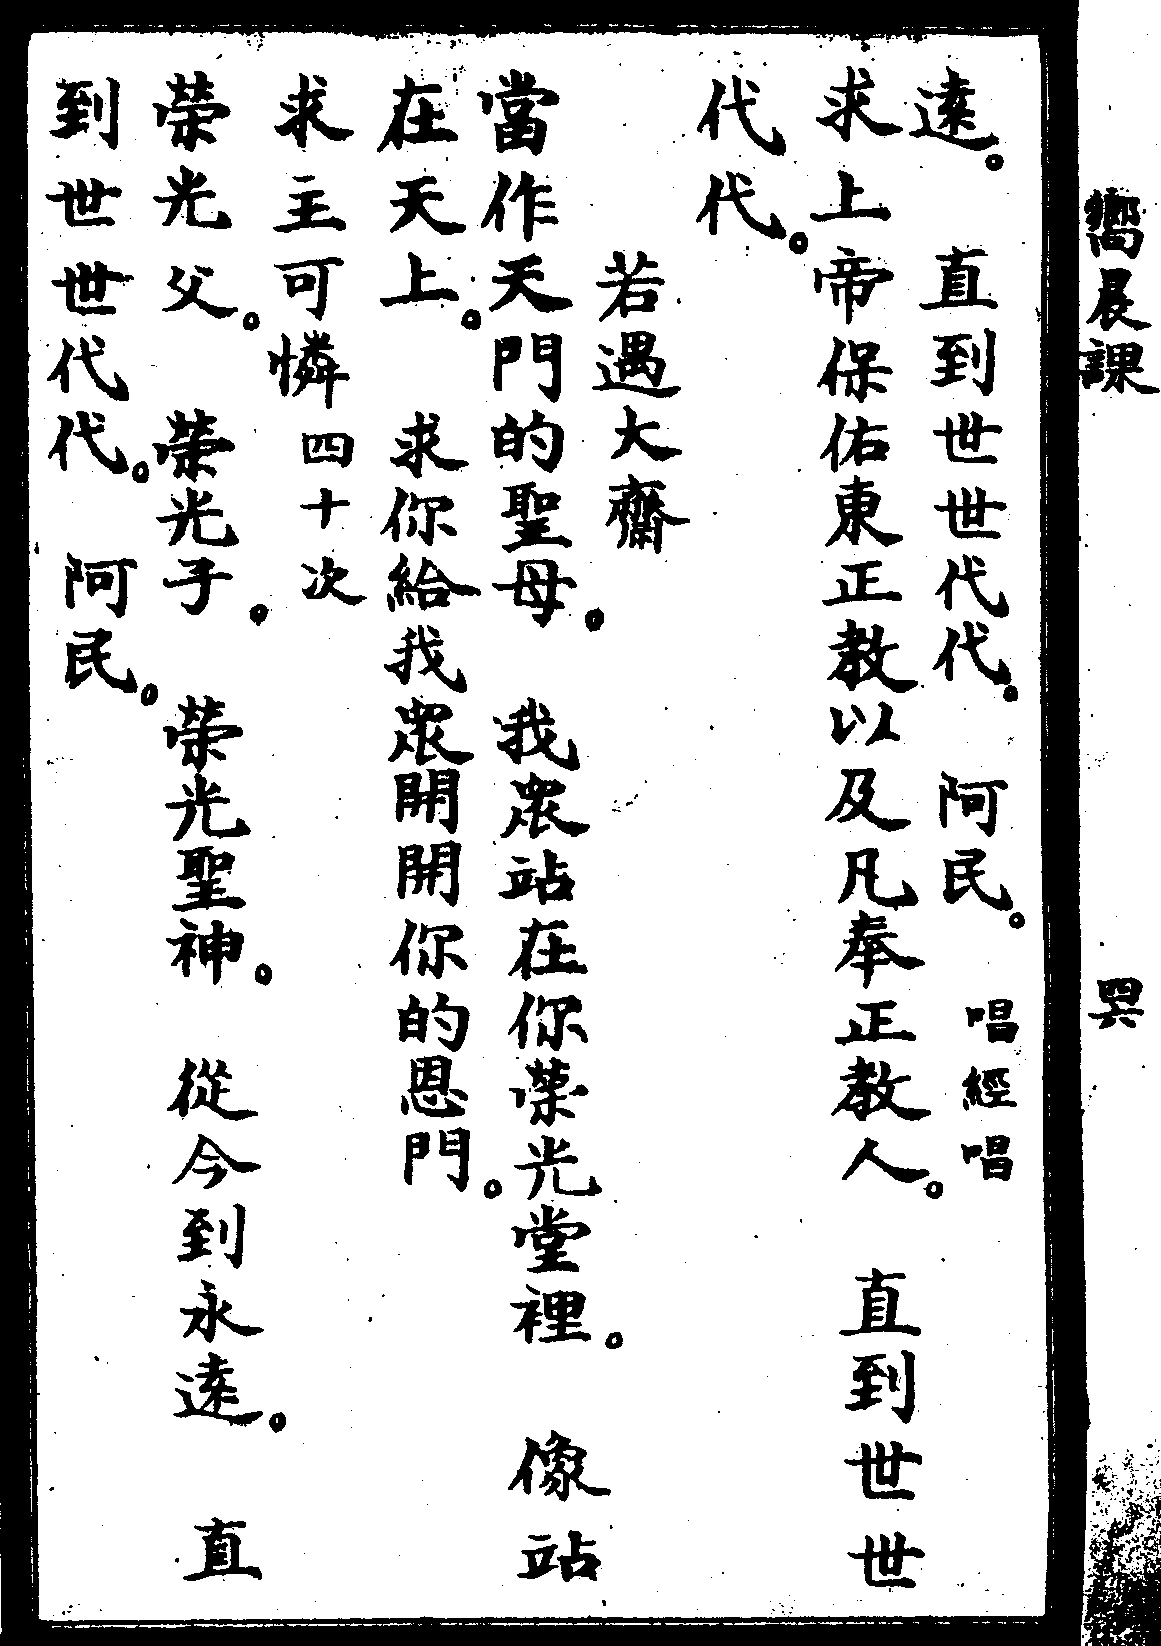 嚮晨課 四六
遠。 直到世世代代。 阿民。 唱經唱
求上帝保佑東正教以及凡奉正教人。 直到世世
代代。
若遇大齋
當作天門的聖母。 我眾站在你榮光堂裡。 像站
在天上。 求你給我眾開開你的恩門。
求主可憐 四十次
榮光父。 榮光子。 榮光聖神。 從今到永遠。 直
到世世代代。 阿民。